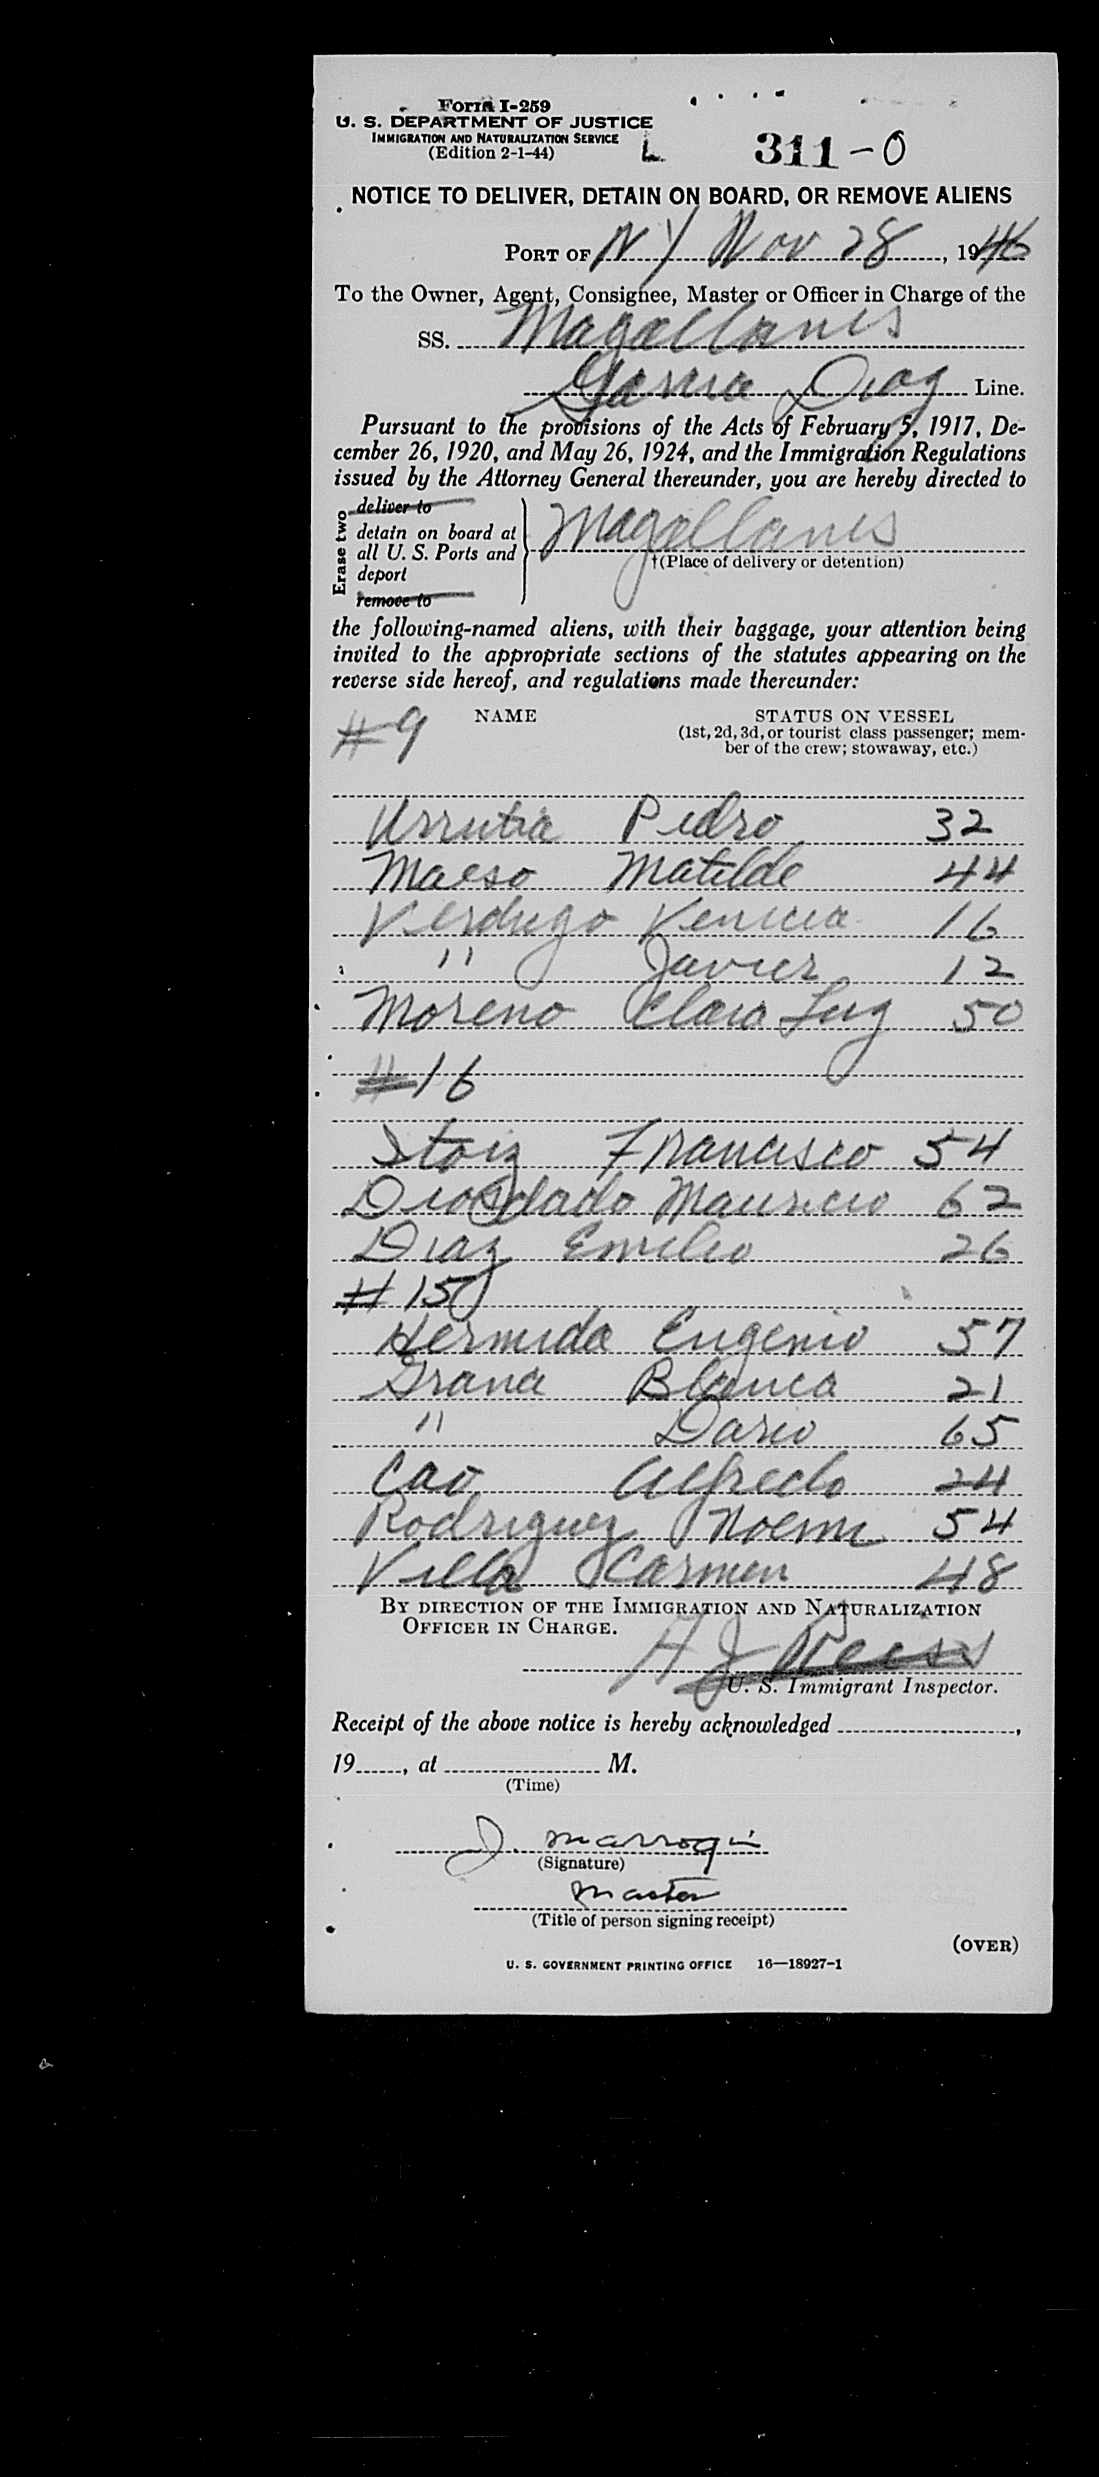 Form I-259
U. S. DEPARTMENT OF JUSTICE
IMMIGRATION AND NATURALIZATION SERVICE
(Edition 2-1-44)
L 311-0
NOTICE TO DELIVER, DETAIN ON BOARD, OR REMOVE ALIENS
PORT OF NY Nov 28, 1946
To the Owner, Agent, Consignee, Master or Officer in Charge of the
SS. Magallanes
Garcia Diaz Line.
Pursuant to the provisions of the Acts of February 5, 1917, De-
cember 26, 1920, and May 26, 1924, and the Immigration Regulations
issued by the Attorney General thereunder, you are hereby directed to
Erase two
deliver to
detain on board at
all U. S. Ports and
deport
remove to
Magallanes
†(Place of delivery or detention)
the following-named aliens, with their baggage, your attention being
invited to the appropriate sections of the statutes appearing on the
reverse side hereof, and regulations made thereunder:
#9 NAME STATUS ON VESSEL
(1st, 2d, 3d, or tourist class passenger; mem-
ber of the crew; stowaway, etc.)
Urrutia Pedro 32
Maeso Matilde 44
Verdugo 16
" Javier 12
Moreno Clara Luz 50
#16
Francisco 54
Diosdado Mauricio 62
Diaz Emilio 26
#15
Hermida Eugenio 57
Grana Blanca 21
" Dario 65
Cao Alfredo 24
Rodriguez Noemi 54
Villa Carmen 48
BY DIRECTION OF THE IMMIGRATION AND NATURALIZATION
OFFICER IN CHARGE.
A J Reiss
U. S. Immigrant Inspector.
Receipt of the above notice is hereby acknowledged ,
19 , at M.
(Time)
J. Marroqui
(Signature)
Master
(Title of person signing receipt)
(OVER)
U. S. GOVERNMENT PRINTING OFFICE 16—18927-1